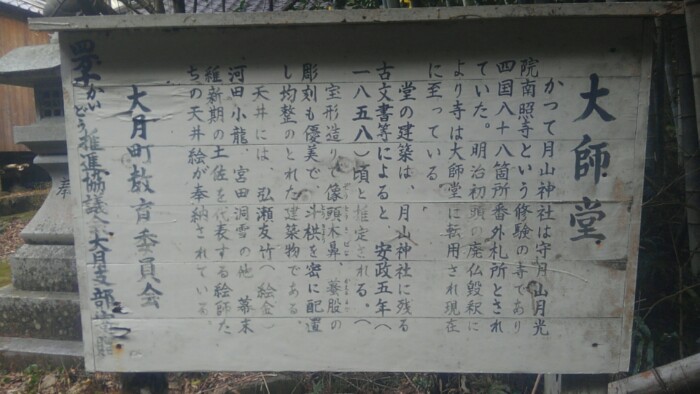 大師堂
かつて月山神社は守月山月光
院南照寺という修験の寺であり
四国八十八箇所番外札所とされ
ていた。明治初頭の廃仏毀釈に
より寺は大師堂に転用され現在
に至っている。
堂の建築は、月山神社に残る
古文書等によると、安政五年(
一八五八)頃と推定される。(
宝形造りで像頭木鼻、蟇股の
彫刻も優美で、斗栱を密に配置
し均整のとれた建築物である。
天井には、弘瀬友竹(絵金)
河田小龍、宮田洞雪の他 幕末
維新期の土佐を代表する絵師た
ちの天井絵が奉納されている。
大月町教育委員会
かいどう推進協議会大月支部
奉